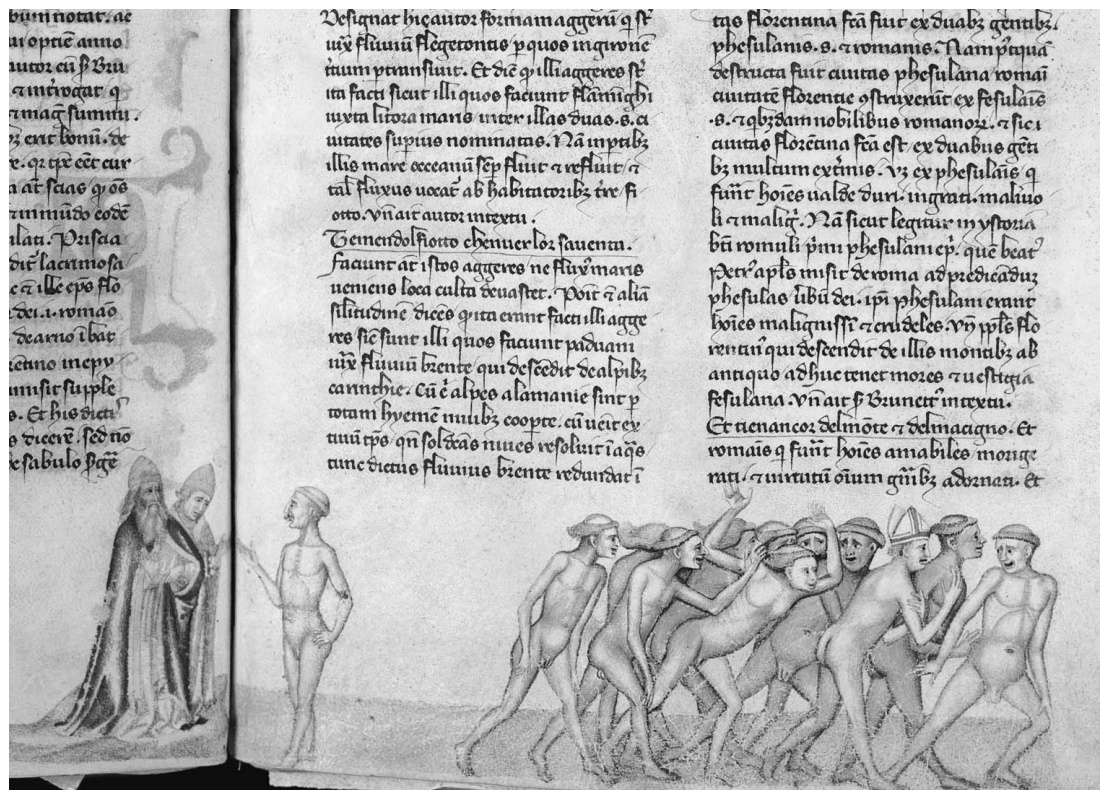 bum notat. ae
ui optie anno
autor cu s Bru
⁊ introgat q
⁊ mag summi.
erit bonu. de
e. qr tpe eet cur
a at scias q os
⁊ in mudo eode
ulati. Priscia
dit lacrimosa
e ⁊ ille eps flo
dei. i. romao
de arno i bat
retino in epy
misit supple
s. Et his dicti
s dicere. sed no
e sabulo pge
Designat hic autor formam aggeru q st
iux fluuiu flegetontis p quos in girone
tium ptransiuit. Et dic q illi aggeres st
ita facti sicut illi quos faciunt flaminghi
iuxta litora maris inter illas duas .s. ci
uitates supius nominatas. Na in ptibz
illis mare occeanu semp fluit ⁊ refluit ⁊
tal fluxus uocat ab habitatoribz tre fi
otto. vn ait autor in textu.
Temendol fiotto che nuer lor sauenta.
faciunt at istos aggeres ne flux maris
ueniens loca culta deuastet. Poit ⁊ alia
silitudine dices q ita erant facti illi agge
res sic sunt illi quos faciunt paduani
iux fluuiu brente qui descedit de alpibz
carinthie. Cu e alpes alamanie sint p
totam hyeme niuibz coopte. cu ueit ex
tiuu tps qn sol deas niues resoluit i aqs
tunc dictus fluuius brente redundat i
tas florentina fca fuit ex duabz gentibz.
phesulanis .s. ⁊ romanis. Nam ptqua
destructa fuit ciuitas phesulana romai
ciuitate florentie ɔstruxerut ex fesulais
.s. ⁊ qbzdam nobilibus romanor. ⁊ sic i
ciuitas flore̅tina fca est ex duabus geti
bz multum extimis. vz ex phesulais q
fuut hoies ualde duri. ingrati. maliuo
li ⁊ malig. Na sicut legitur in ystoria
bti romuli pmi phesulani ep. que beat
Petr apls misit de roma ad predicaduz
phesulas ubu dei. ipi phesulani erant
hoies malignissi ⁊ crudeles. vn ppls flo
rentin qui descendit de illis montibz ab
antiquo adhuc tenet mores ⁊ uestigia
fesulana. vn ait s Brunett in textu.
Et tienancor delmote ⁊ delmacigno. Et
romais q fuut hoies amabiles morige
rati. ⁊ uirtutu oium gnibz adornati. Et